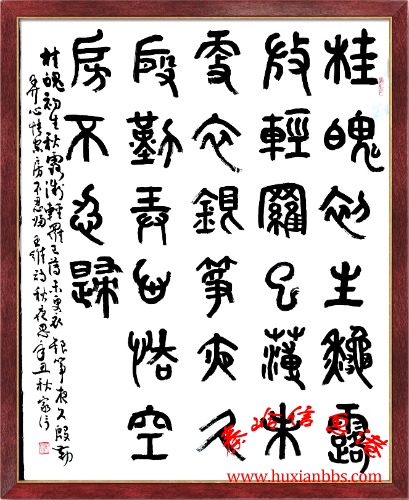 桂魄初生秋露
微輕羅已薄未
更衣銀箏夜久
殷勤弄心怯空
房不忍歸
桂魄初生秋露微輕羅已薄未更衣銀箏夜久殷勤
弄心怯空房不忍歸 王維詩秋夜
www.huxianbbs.com